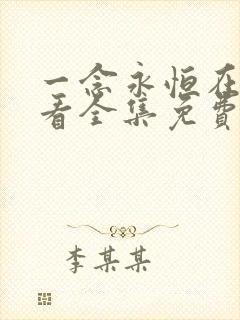 一念永恒在
看全集免费
李某某